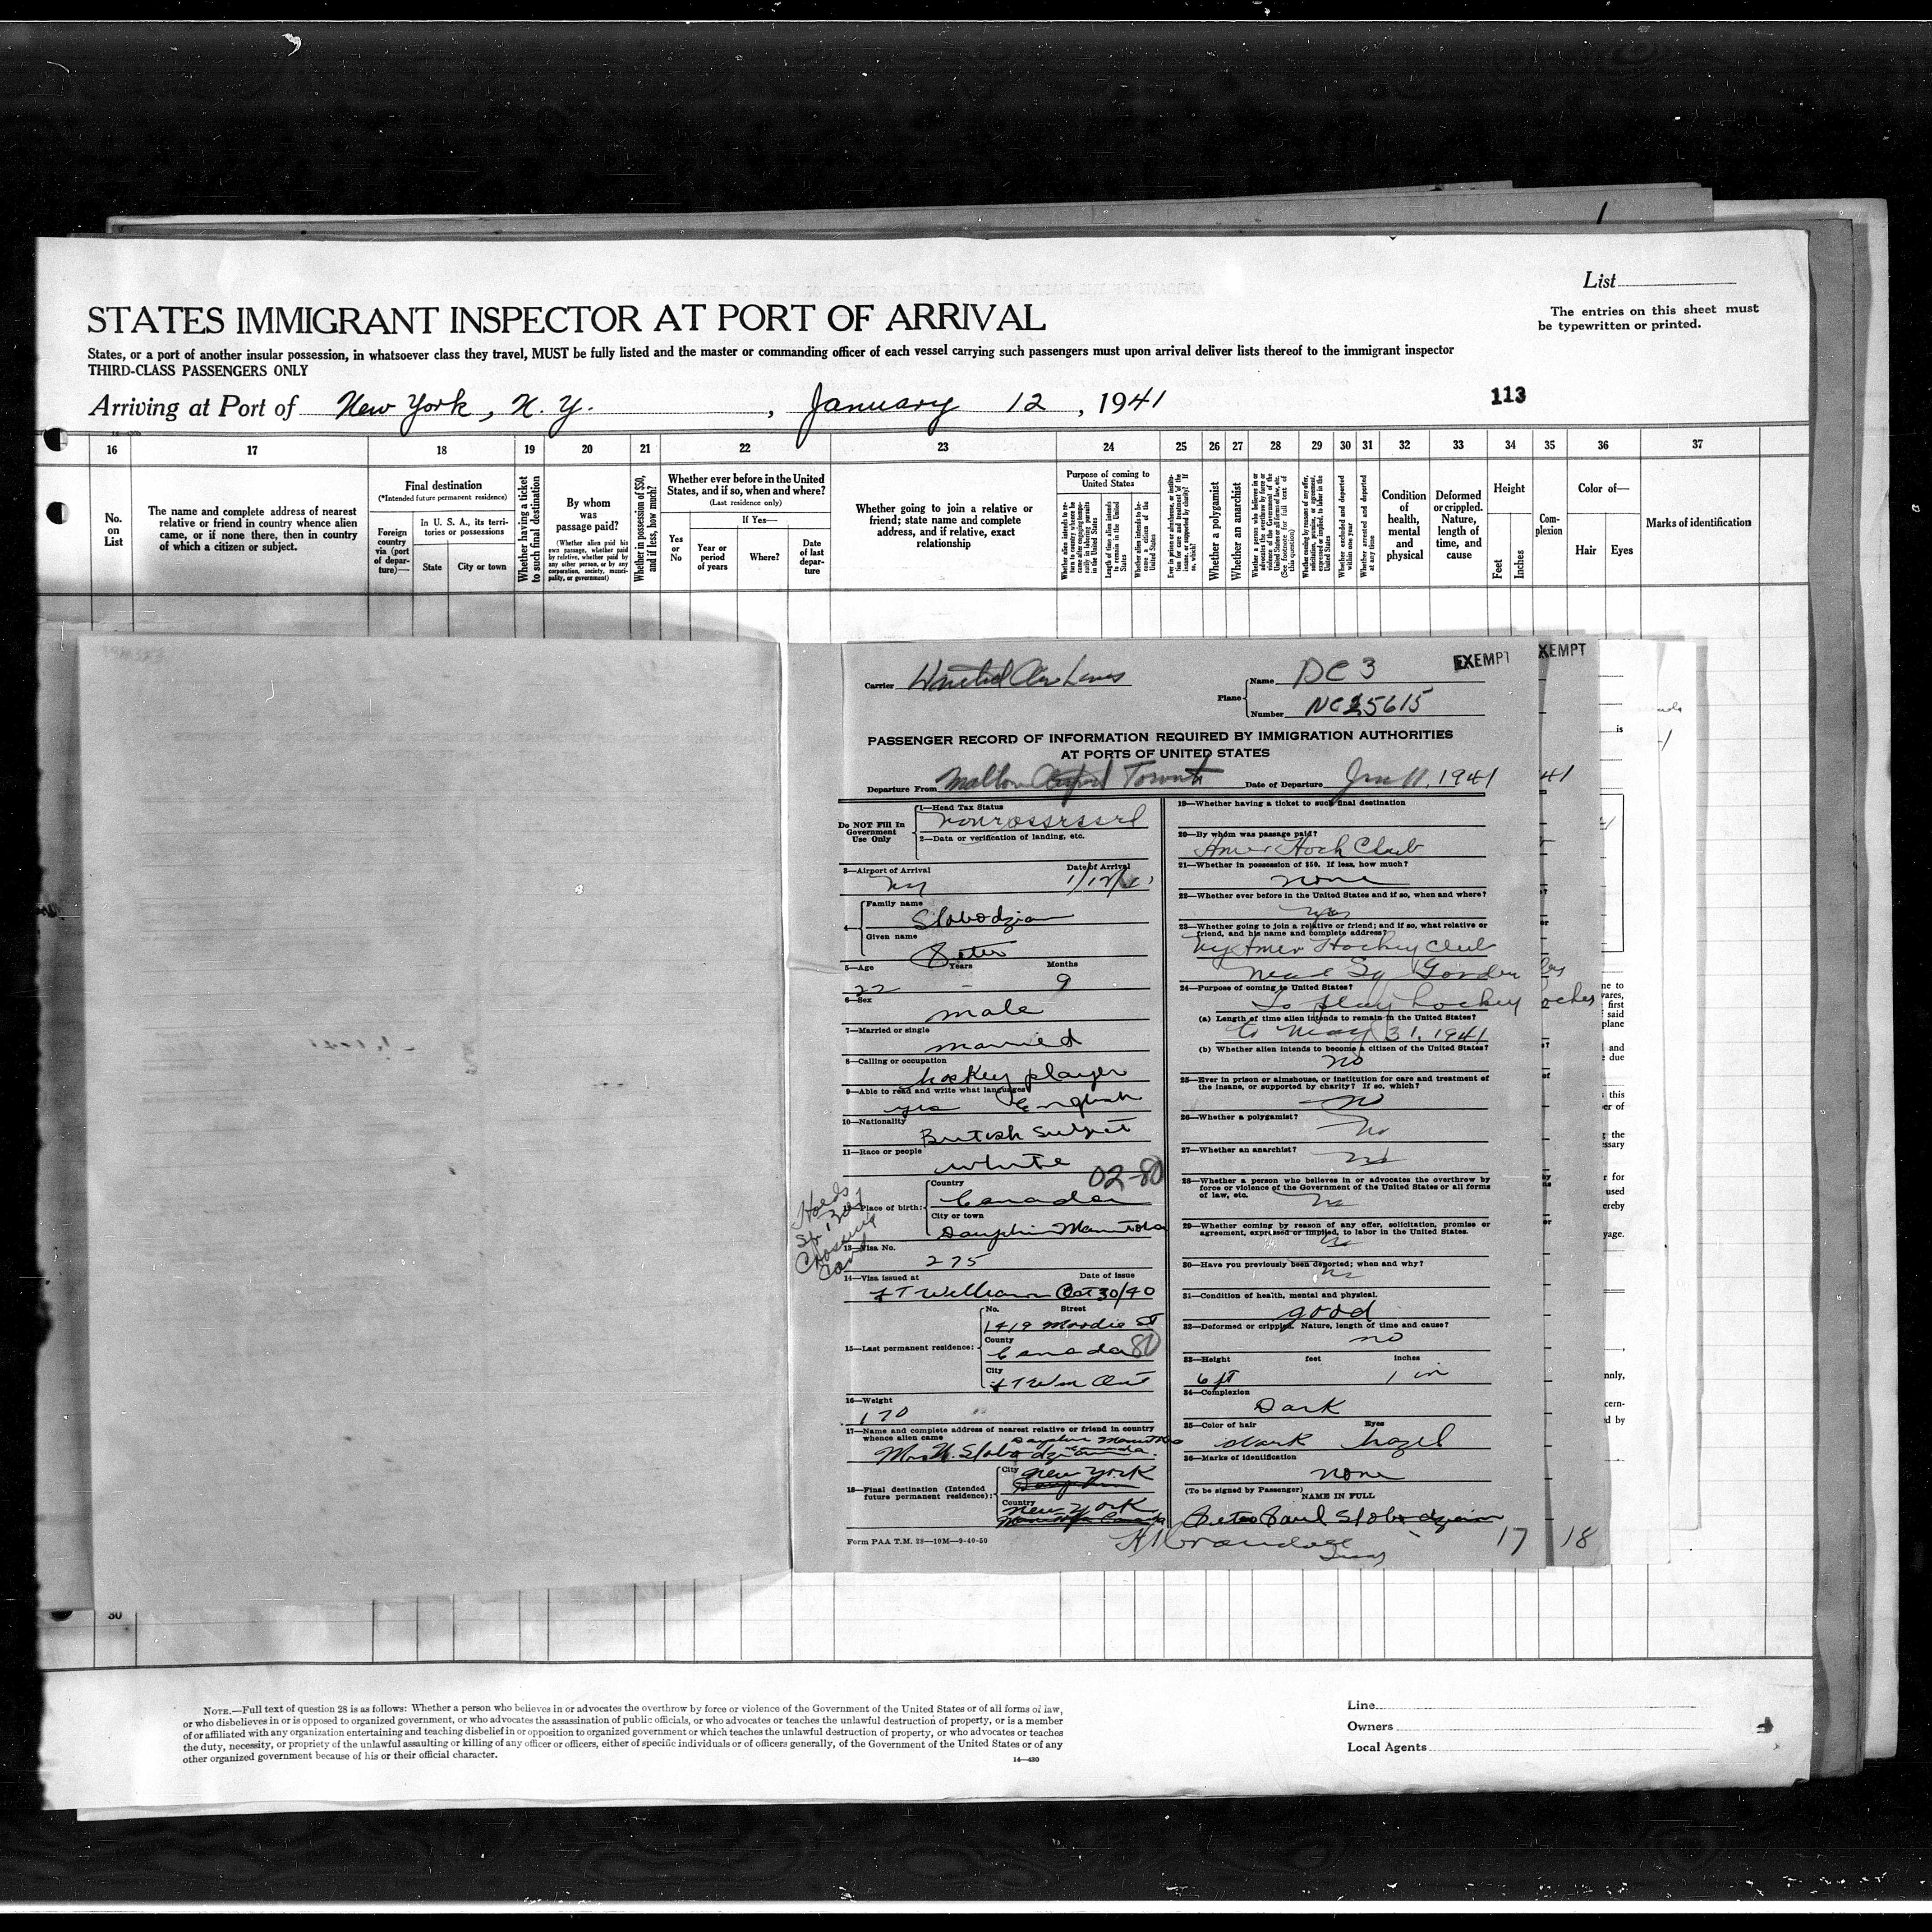 List
STATES IMMIGRANT INSPECTOR AT PORT OF ARRIVAL
The entries on this sheet must
be typewritten or printed.
States, or a port of another insular possession, in whatsoever class they travel, MUST be fully listed and the master or commanding officer of each vessel carrying such passengers must upon arrival deliver lists thereof to the immigrant inspector
THIRD-CLASS PASSENGERS ONLY
Arriving at Port of New York, N. Y., January 12, 1941
113
16 17 18 19 20 21 22 23 24 25 26 27 28 29 30 31 32 33 34 35 36 37
No. on List
The name and complete address of nearest relative or friend in country whence alien came, or if none there, then in country of which a citizen or subject.
Final destination
(*Intended future permanent residence)
Foreign country via (port of departure)—
In U. S. A., its territories or possessions
State
City or town
Whether having a ticket to such final destination
By whom was passage paid?
(Whether alien paid his own passage, whether paid by relative, whether paid by any other person, or by any corporation, society, municipality, or government)
Whether in possession of $50, and if less, how much?
Whether ever before in the United States, and if so, when and where?
(Last residence only)
Yes or No
If Yes—
Year or period of years
Where?
Date of last departure
Whether going to join a relative or friend; state name and complete address, and if relative, exact relationship
Purpose of coming to United States
Whether alien intends to return to country whence he came after engaging temporarily in laboring pursuits in the United States
Length of time alien intends to remain in the United States
Whether alien intends to become a citizen of the United States
Ever in prison or almshouse, or institution for care and treatment of the insane, or supported by charity? If so, which?
Whether a polygamist
Whether an anarchist
Whether a person who believes in or advocates the overthrow by force or violence of the Government of the United States or all forms of law, etc. (See footnote for full text of this question)
Whether coming by reason of any offer, solicitation, promise, or agreement, expressed or implied, to labor in the United States
Whether excluded and deported within one year
Whether arrested and deported at any time
Condition of health, mental and physical
Deformed or crippled. Nature, length of time, and cause
Height
Feet
Inches
Complexion
Color of—
Hair
Eyes
Marks of identification
EXEMPT
XEMPT
Carrier Air Lines
Plane Name DC 3
Number NC25615
PASSENGER RECORD OF INFORMATION REQUIRED BY IMMIGRATION AUTHORITIES
AT PORTS OF UNITED STATES
Departure From Malton Airport Toronto
Date of Departure Jan 11, 1941
Do NOT Fill In Government Use Only
1—Head Tax Status
2—Data or verification of landing, etc.
3—Airport of Arrival NY
Date of Arrival 1/12/41
4— Family name Slobodzian
Given name Peter
5—Age Years 22 Months 9
6—Sex male
7—Married or single married
8—Calling or occupation hockey player
9—Able to read and write what languages yes English
10—Nationality British Subject
11—Race or people white
02-80
12—Place of birth: Country Canada
City or town Dauphin Manitoba
Holds
Crossing
Card
13—Visa No. 275
14—Visa issued at Ft William Date of issue Oct 30/40
15—Last permanent residence: No. Street 1419 Moodie St
County Canada 80
City Ft Wm Ont
16—Weight 170
17—Name and complete address of nearest relative or friend in country
whence alien came Dauphin Manitoba
Mrs N. Slobodzian Canada.
18—Final destination (Intended future permanent residence): City New York
Dauphin
Country New York
Manitoba Canada
Form PAA T.M. 28—10M—9-40-50
19—Whether having a ticket to such final destination
20—By whom was passage paid?
Amer Hock Club
21—Whether in possession of $50. If less, how much?
none
22—Whether ever before in the United States and if so, when and where?
yes
23—Whether going to join a relative or friend; and if so, what relative or
friend, and his name and complete address?
Ny Amer Hockey Club
Sq Garden
24—Purpose of coming to United States?
to play hockey
(a) Length of time alien intends to remain in the United States?
to May 31, 1941
(b) Whether alien intends to become a citizen of the United States?
no
25—Ever in prison or almshouse, or institution for care and treatment of
the insane, or supported by charity? If so, which?
no
26—Whether a polygamist?
no
27—Whether an anarchist?
no
28—Whether a person who believes in or advocates the overthrow by
force or violence of the Government of the United States or all forms
of law, etc.
no
29—Whether coming by reason of any offer, solicitation, promise or
agreement, expressed or implied, to labor in the United States.
no
30—Have you previously been deported; when and why?
no
31—Condition of health, mental and physical.
good
32—Deformed or crippled. Nature, length of time and cause?
no
33—Height feet inches
6 ft 1 in
34—Complexion
Dark
35—Color of hair Eyes
dark hazel
36—Marks of identification
none
(To be signed by Passenger)
NAME IN FULL
Peter Paul Slobodzian
17
18
30
NOTE.—Full text of question 28 is as follows: Whether a person who believes in or advocates the overthrow by force or violence of the Government of the United States or of all forms of law,
or who disbelieves in or is opposed to organized government, or who advocates the assassination of public officials, or who advocates or teaches the unlawful destruction of property, or is a member
of or affiliated with any organization entertaining and teaching disbelief in or opposition to organized government or which teaches the unlawful destruction of property, or who advocates or teaches
the duty, necessity, or propriety of the unlawful assaulting or killing of any officer or officers, either of specific individuals or of officers generally, of the Government of the United States or of any
other organized government because of his or their official character.
14—430
Line
Owners
Local Agents